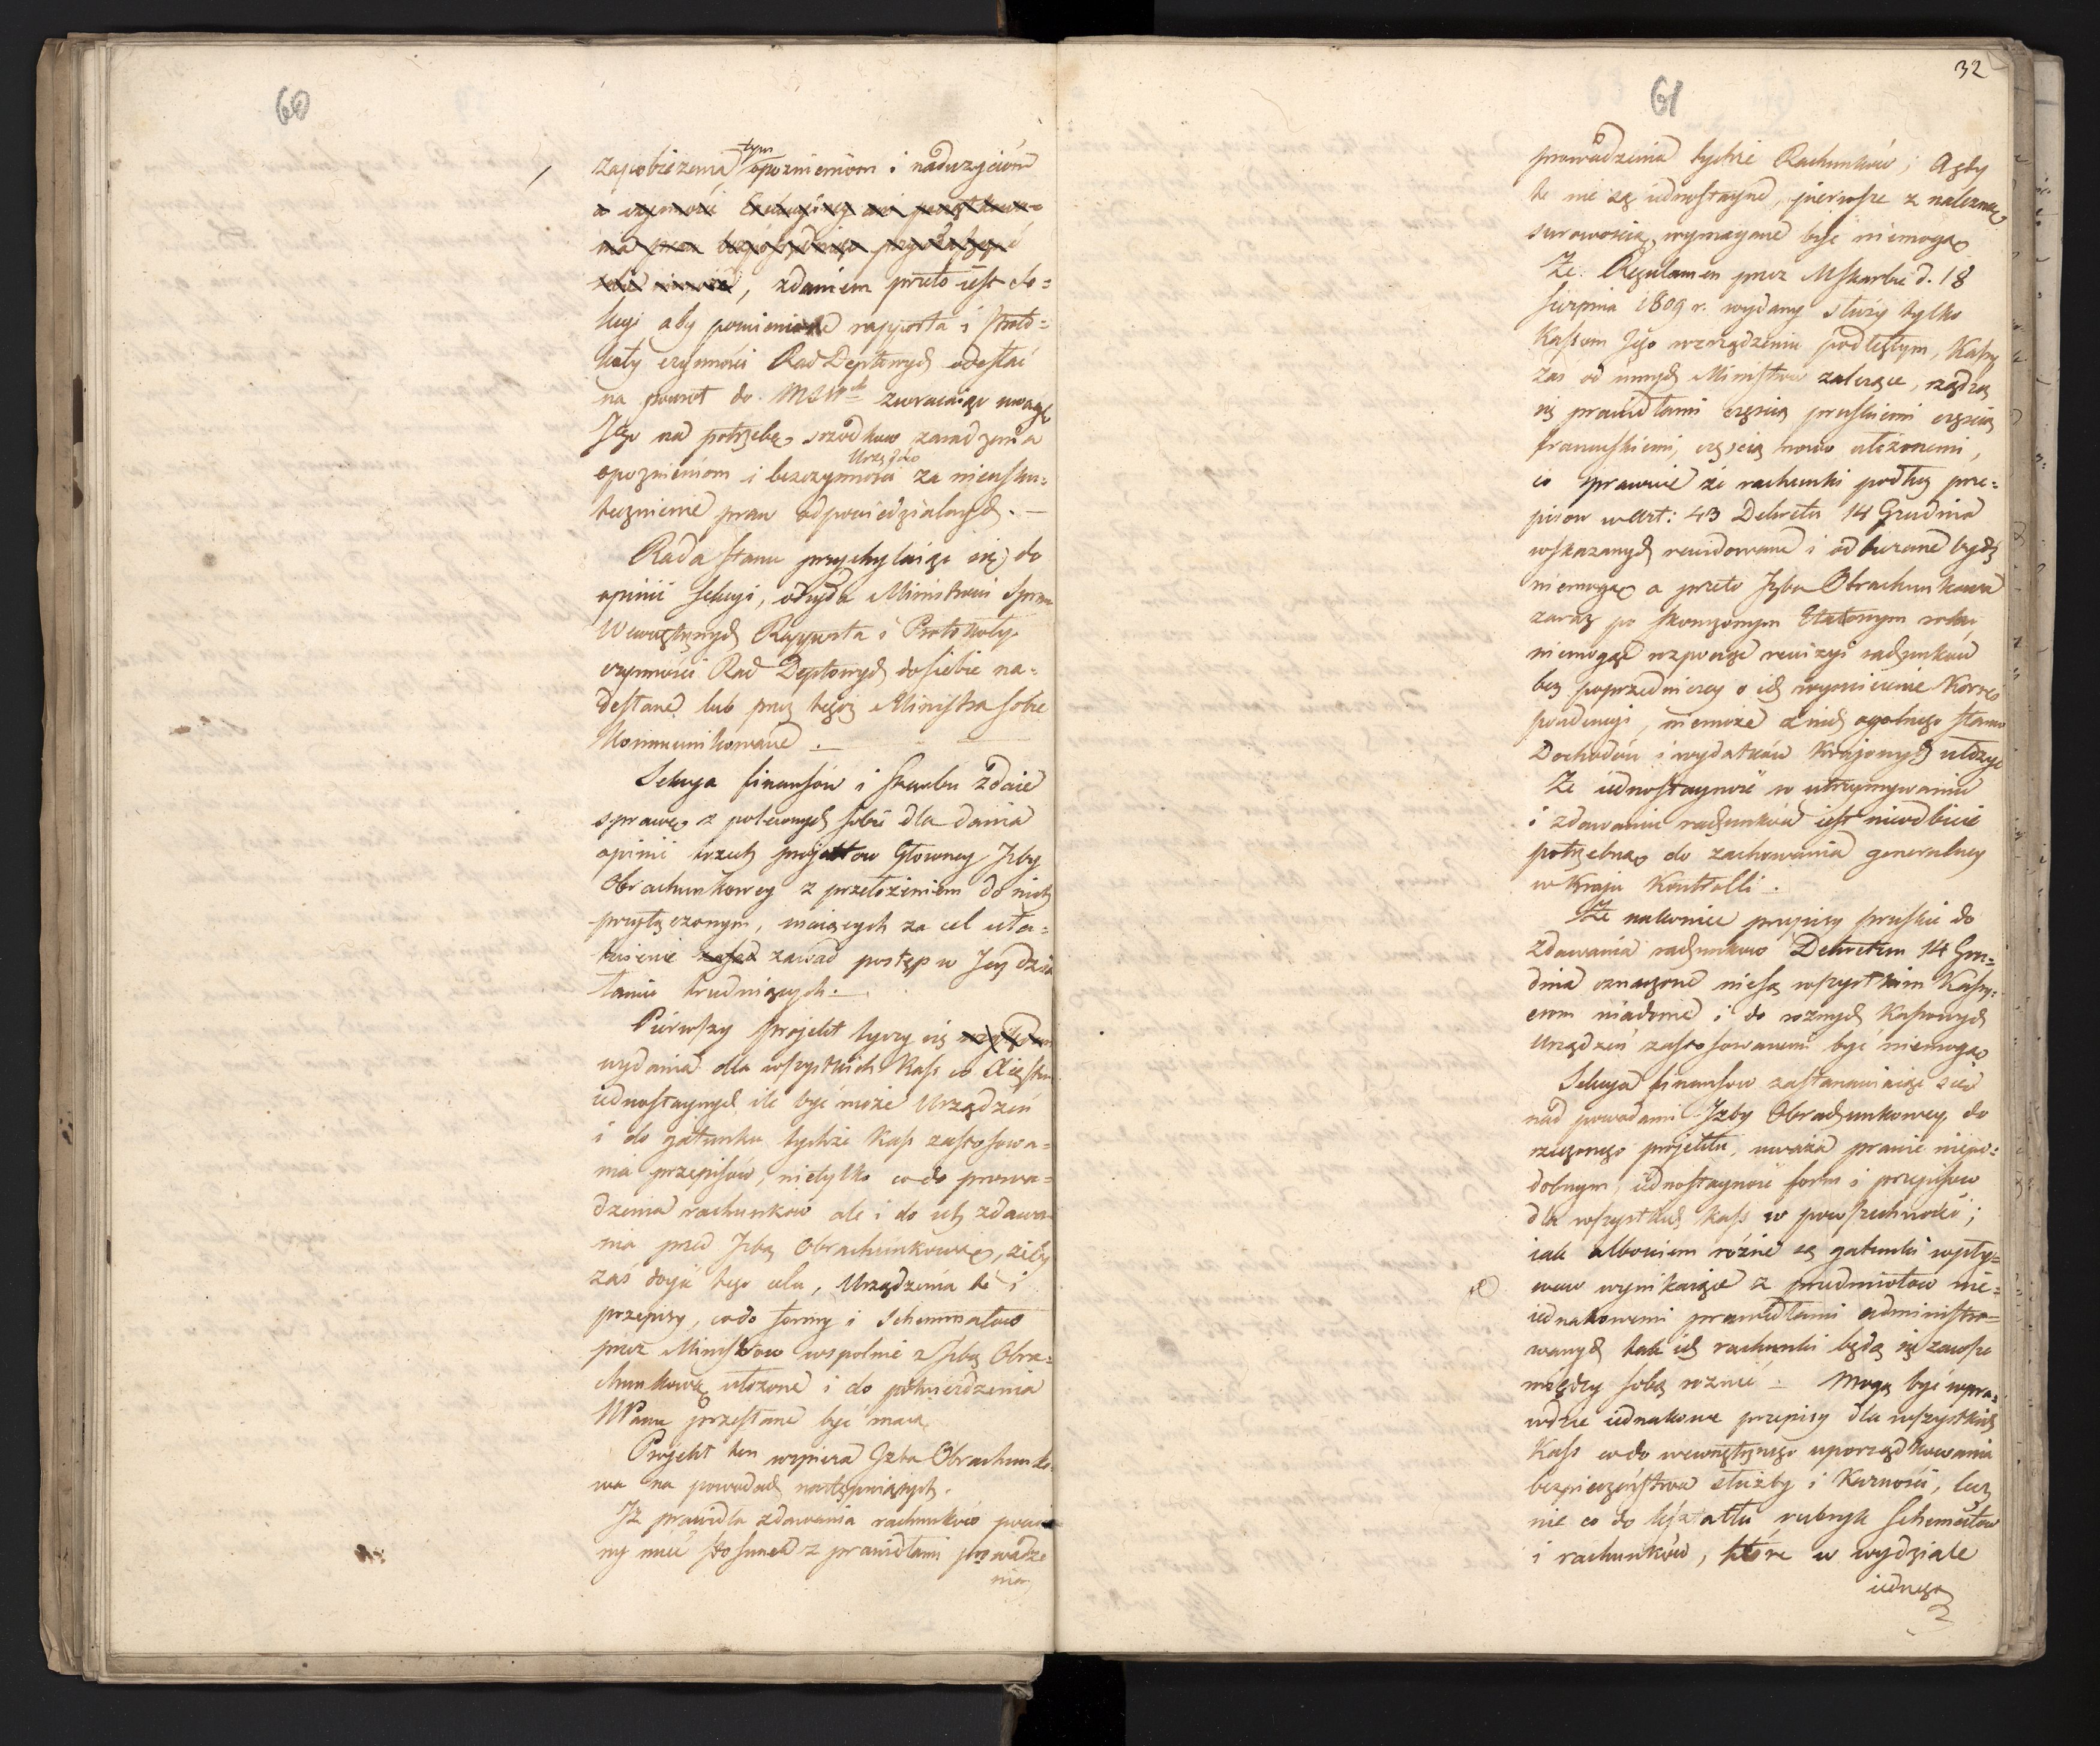 60
tym
zapobieżenia opoznieniom i nadużyciom
, zdaniem przeto iest Se=
kcyi aby pomienione rapporta i Proto=
koły czynności Rad Deptowych odesłać
na powrot do MSW zwracaiąc uwagę
Jego na potrzebę srzodkow zaradzenia
Urzędow
opoznieniom i bezczynności za nieusku=
tecznienie praw odpowiedzialnych. —
Rada Stanu przychylaiąc się do
opinii Sekcyi, odsyła Ministrowi Spraw
Wewnętrznych Rapporta i Protokoły
czynności Rad Deptowych do siebie na=
desłane lub przez tegoż Ministra sobie
kommunikowane. —
Sekcya finansów i Skarbu zdaie
sprawę z poleconych sobie dla dania
opinii trzech projektow Głowney Izby
Obrachunkowey z przełożeniem do nich
przyłączonym, maiących za cel uła=
twienie zawad postęp w Jey dzia
łaniu trudniących. —
Pierwszy projekt tyczy się
wydania dla wszystkich Kass w Xięstwie
iednostaynych ile być może Urządzeń
i do gatunku tychże Kass zastosowa=
nia przepisów, nietylko co do prowa=
dzenia rachunkow ale i do ich zdawa
nia przed Izbą Obrachunkową, żeby
zaś doyść tego celu, Urządzenia te i
przepisy, co do formy i schemmatow
przez Ministrow wspolnie z Izbą Obra=
chunkową ułożone i do potwierdzenia
NPanu przesłane być maią.
Projekt ten wspiera Izba Obrachunko
wa na powodach następuiących.
Iż prawidła zdawania rachunków powin
ny mieć stosunek z prawidłami prowadze
nia
32
61
prowadzenia tychże Rachunków; Gdy
te nie są iednostayne, pierwsze z należną
surowością wymagane być niemogą
Że Regulamen przez MSkarbu d. 18
Sierpnia 1809 r. wydany służy tylko
Kassom Jego zarządzeniu podległym, Kassy
zas od innych Ministrów zależące, rządzą
się prawidłami częścią pruskiemi częścią
francuskiemi, częścią nowo ułożonemi,
co sprawuie że rachunki podług prze=
pisow w art: 43 Dekretu 14 Grudnia
wskazanych rewidowane i odbierane bydź
niemogą a przeto Izba Obrachunkowa
zaraz po skończonym Etatowym roku
niemogąc rozpocząć rewizyi rachunków
bez poprzedniczey o ich wyiaśnienie Korres
pondencyi, niemoże z nich ogolnego stanu
Dochodów i wydatków Krajowych ułożyć
Że iednostayność w utrzymywaniu
i zdawaniu rachunków iest nieodbicie
potrzebną do zachowania generalney
w Kraju Kontrolli.
Że nakoniec przepisy pruskie do
zdawania rachunkow Dekretem 14 Gru=
dnia oznaczone niesą wszystkim Kassy=
erom wiadome i do rożnych Kassowych
Urządzeń zastosowanemi być niemogą
Sekcya finansow zastanawiaiąc się
nad powodami Izby Obrachunkowey do
rzeczonego projektu, uważa prawie niepo=
dobnym, iednostayność form i przepisow
dla wszystkich Kass w powszechności;
iak albowiem różne są gatunki wpły=
wow wynikaiące z przedmiotow nie=
iednakowemi prawidłami administro=
wanych tak ich rachunki będą się zawsze
między sobą roznić. Mogą być wpra=
wdzie iednakowe przepisy dla wszystkich
Kass co do wewnętrznego uporządkowania
bezpieczeństwa służby i Karności, lecz
nie co do kształtu rubryk Schematow
i rachunków, które w wydziale
iednego